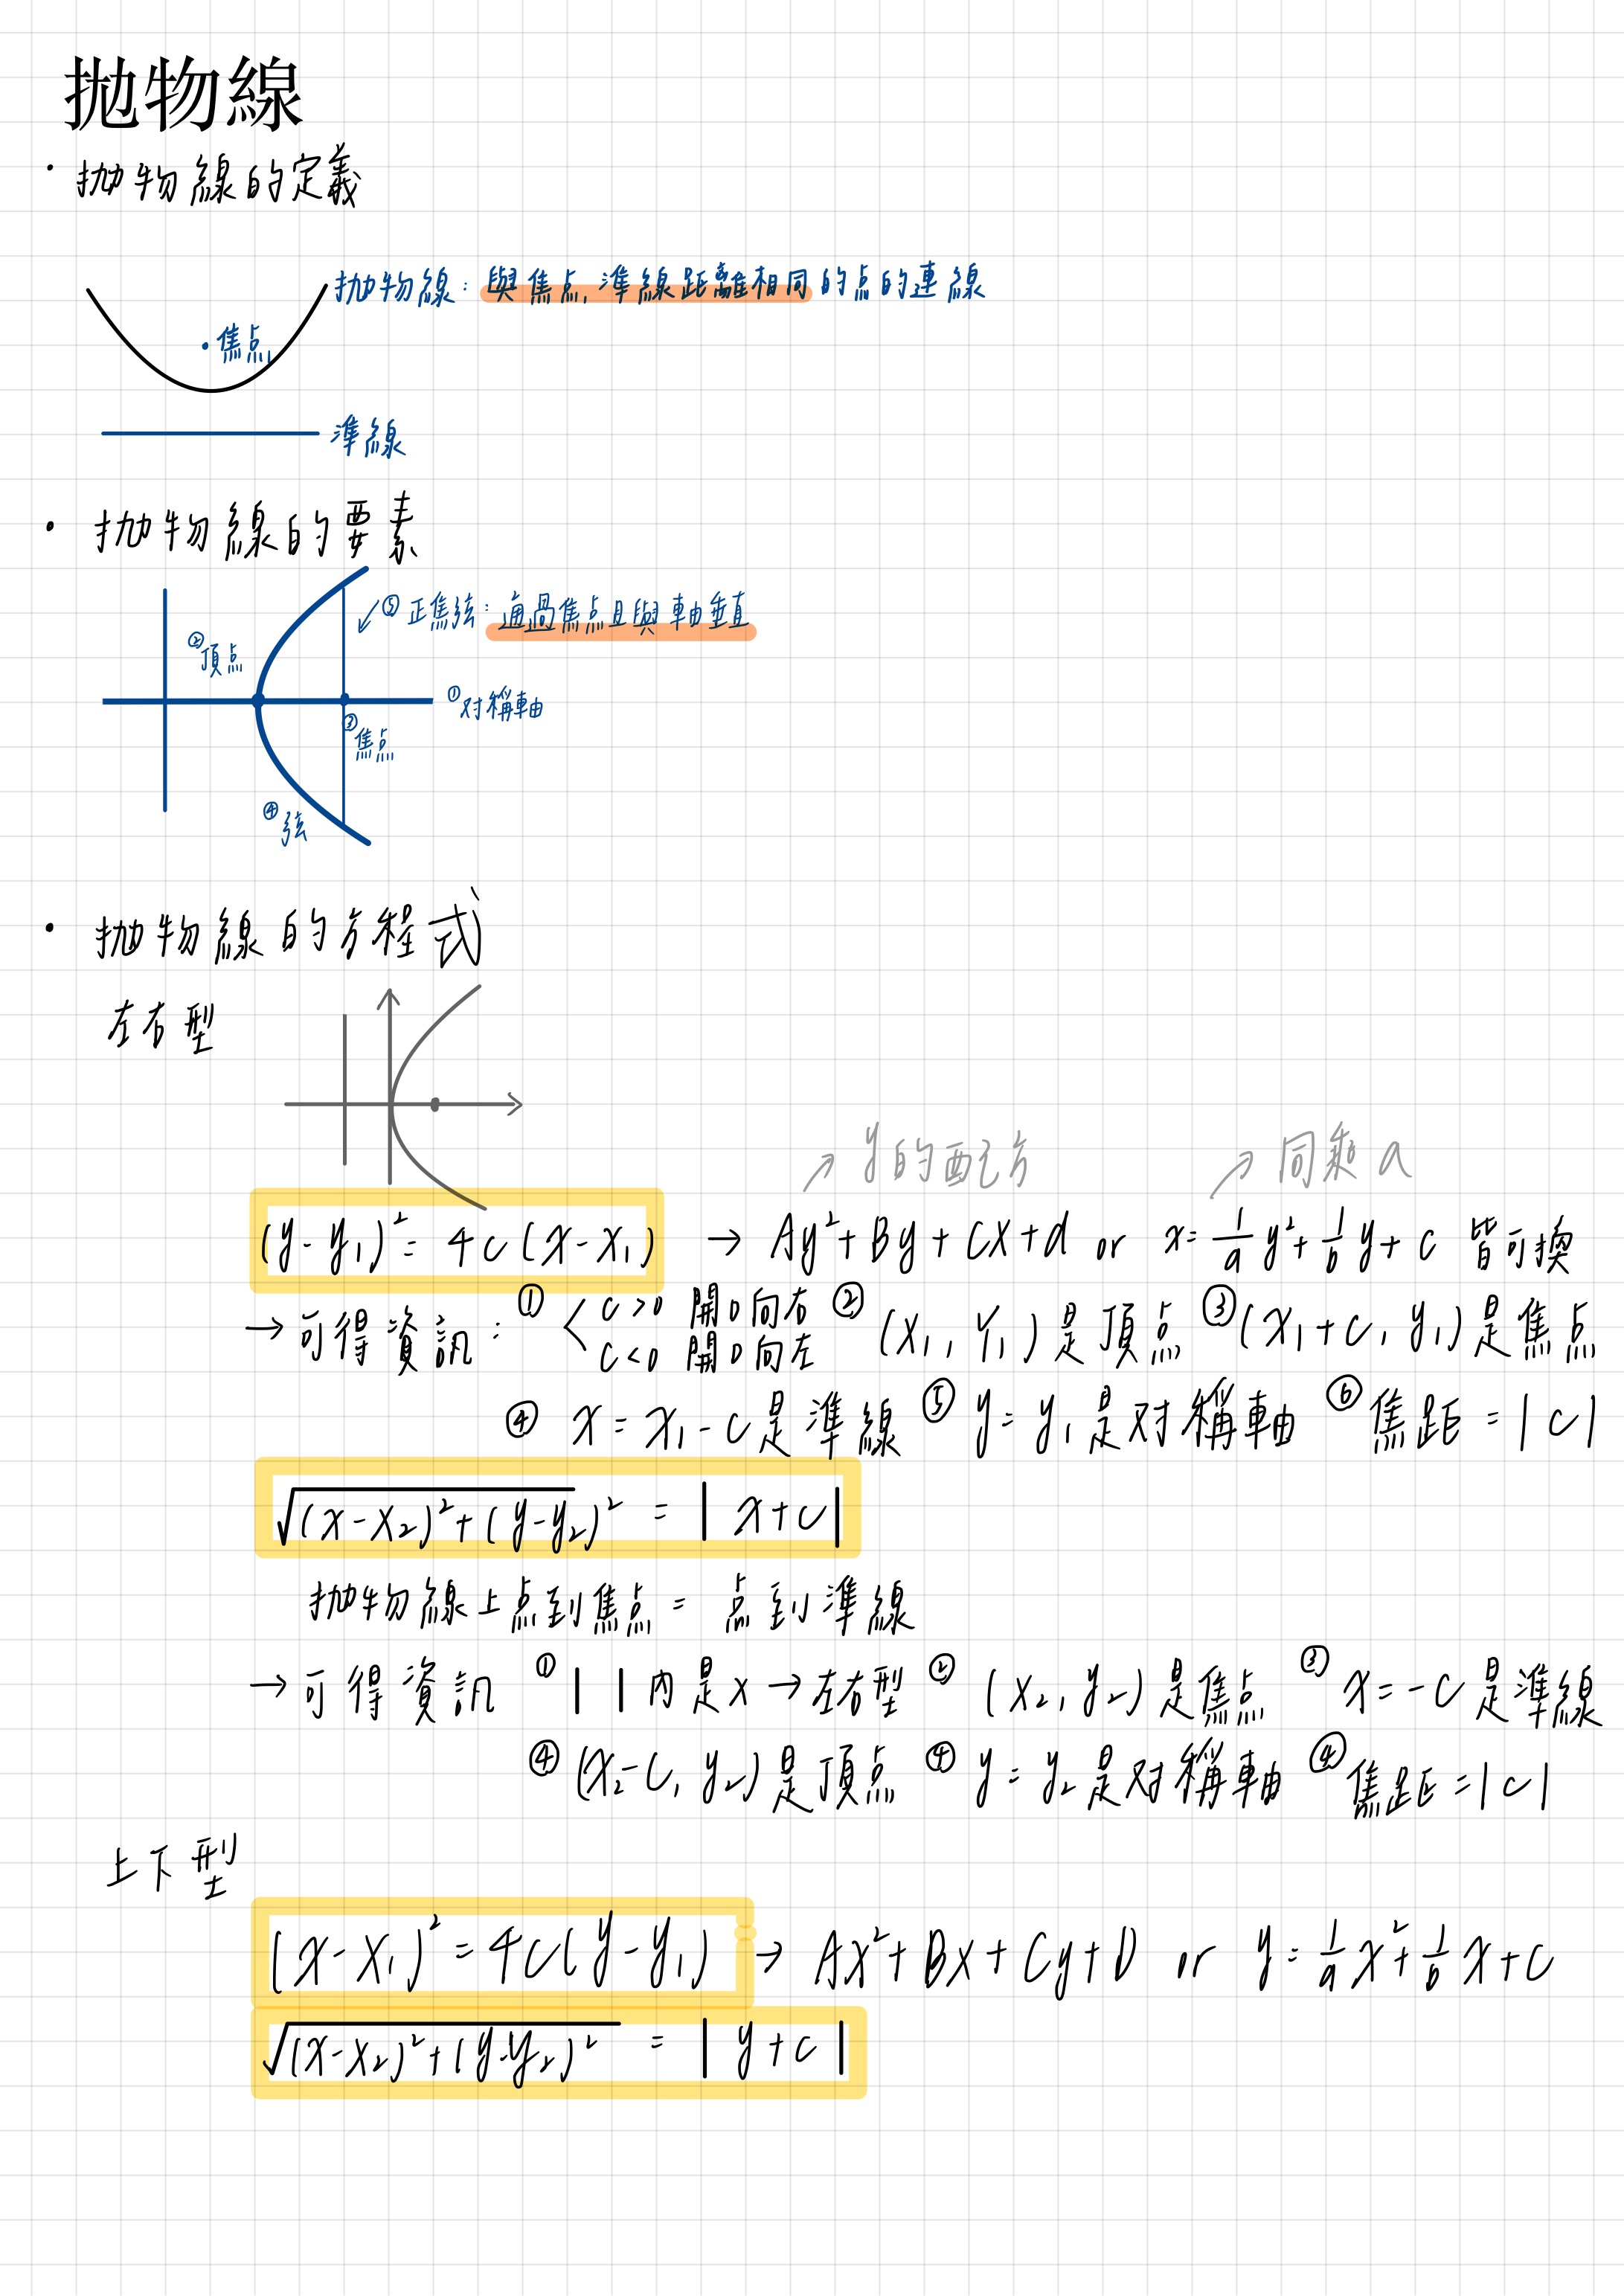 拋物線
・拋物線的定義
拋物線：與焦点,準線距離相同的点的連線
・焦点
準線
・拋物線的要素
⑤正焦弦：通過焦点且與軸垂直
②頂点
①对稱軸
③焦点
④弦
・拋物線的方程式
左右型
↗ y的配方 ↗ 同乘a
(y-y₁)² = 4c(x-x₁) → Ay²+By+Cx+d or x=1/a y²+1/b y+c 皆可換
→可得資訊：① < c>0 開口向右 c<0 開口向左 ② (x₁, y₁)是頂点 ③ (x₁+c, y₁)是焦点
④ x=x₁-c是準線 ⑤ y=y₁是对稱軸 ⑥ 焦距=|c|
√(x-x₂)²+(y-y₂)² = |x+c|
拋物線上点到焦点=点到準線
→可得資訊 ① | |內是x→左右型 ② (x₂, y₂)是焦点 ③ x=-c是準線
④ (x₂-c, y₂)是頂点 ④ y=y₂是对稱軸 ④ 焦距=|c|
上下型
(x-x₁)² = 4c(y-y₁) → Ax²+Bx+Cy+D or y=1/a x²+1/b x+c
√(x-x₂)²+(y-y₂)² = |y+c|